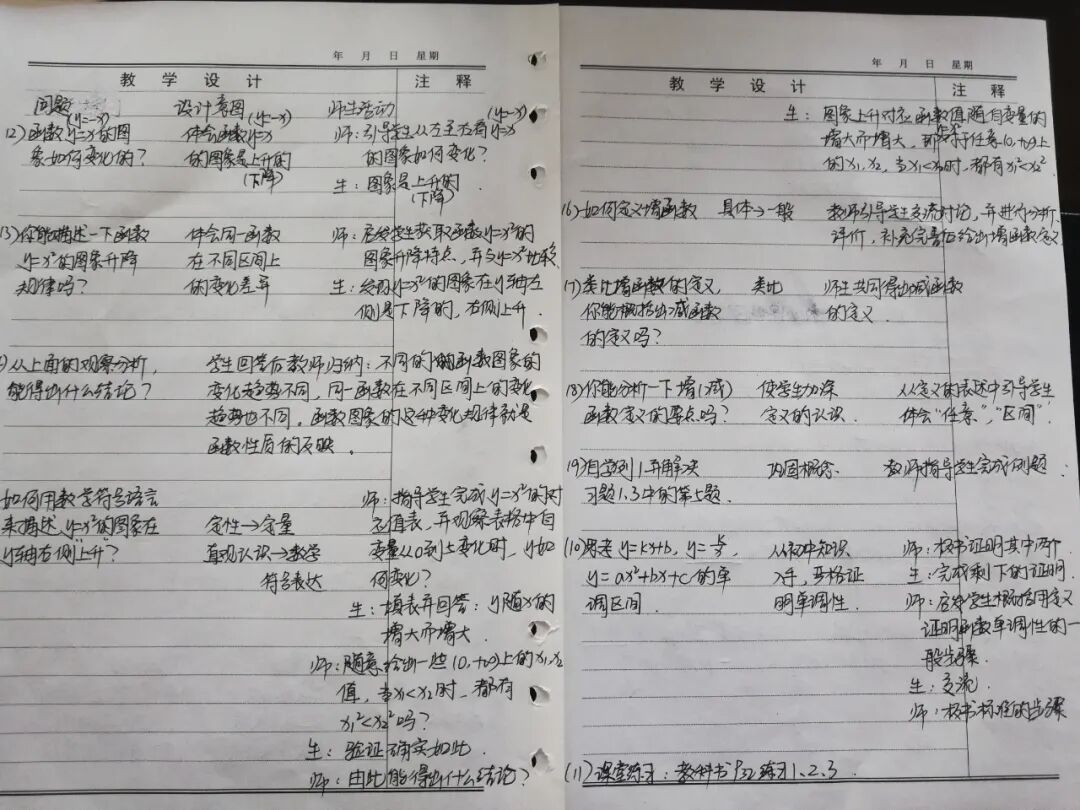 年 月 日 星期
教 学 设 计 注 释
问题 设计意图 师生活动
(y=-x) (y=-x) (y=-x)
(2)函数y=x的图 体会函数y=x 师:引导学生从左至右看y=x
象如何变化的? 的图象是上升的 的图象如何变化?
(下降) 生:图象是上升的.
(下降)
(3)你能描述一下函数 体会同一函数 师:启发学生获取函数y=x²的
y=x²的图象升降 在不同区间上 图象升降特点,并与y=x比较
规律吗? 的变化差异 生:发现y=x²的图象在y轴左
侧是下降的,右侧上升.
)从上面的观察分析, 学生回答后教师归纳:不同的函数图象的
能得出什么结论? 变化趋势不同,同一函数在不同区间上的变化
趋势也不同。函数图象的这种变化规律就是
函数性质的反映。
如何用数学符号语言 师:指导学生完成y=x²的对
来描述y=x²的图象在 定性→定量 应值表,并观察表格中自
y轴右侧"上升"? 直观认识→数学 变量从0到5变化时,y如
符号表达 何变化?
生:填表并回答:y随x的
增大而增大.
师:随意给出一些(0,+∞)上的x₁,x₂
值,当x₁<x₂时,都有
x₁²<x₂²吗?
生:验证确实如此.
师:由此能得出什么结论?
年 月 日 星期
教 学 设 计 注 释
生:图象上升对应函数值随自变量的
增大而增大,即对于任意(0,+∞)上
的x₁,x₂,当x₁<x₂时,都有x₁²<x₂²
(6)如何定义增函数 具体→一般 教师引导学生交流讨论,并进行分析
评价,补充完善后给出增函数定义
(7)类比增函数的定义, 类比 师生共同得出减函数
你能概括出减函数 的定义.
的定义吗?
(8)你能分析一下增(减) 使学生加深 从定义的表述中引导学生
函数定义的要点吗? 定义的认识. 体会"任意","区间"
(9)自学例1并解决 巩固概念. 教师指导学生完成例题
习题1.3中的第5题.
(10)思考y=kx+b,y=k/x, 从初中知识 师:板书证明其中两个
y=ax²+bx+c的单 入手,严格证 生:完成剩下的证明.
调区间. 明单调性. 师:启发学生概括用定义
证明函数单调性的一
般步骤.
生:交流
师:板书标准的步骤
(11)课堂练习:教科书P32练习1、2、3.